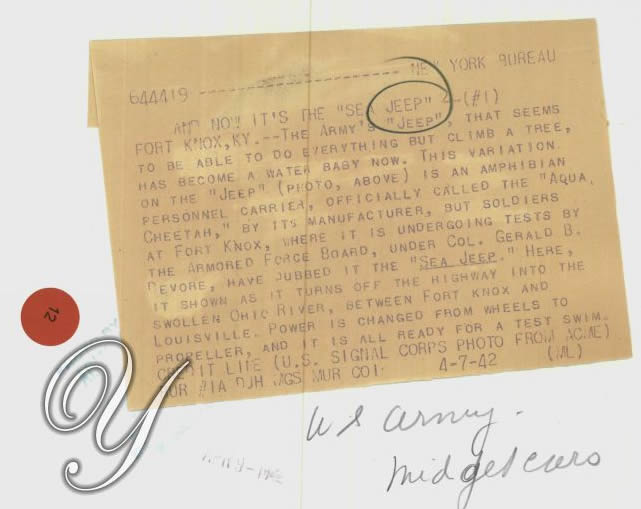 NEW YORK BUREAU
644419
AND NOW IT'S THE "SEA JEEP" 2-(#1)
FORT KNOX,KY.--THE ARMY'S "JEEP", THAT SEEMS
TO BE ABLE TO DO EVERYTHING BUT CLIMB A TREE,
HAS BECOME A WATER BABY NOW. THIS VARIATION
ON THE "JEEP" (PHOTO, ABOVE) IS AN AMPHIBIAN
PERSONNEL CARRIER, OFFICIALLY CALLED THE "AQUA
CHEETAH," BY ITS MANUFACTURER, BUT SOLDIERS
AT FORT KNOX, WHERE IT IS UNDERGOING TESTS BY
THE ARMORED FORCE BOARD, UNDER COL. GERALD B.
DEVORE, HAVE JUBBED IT THE "SEA JEEP." HERE,
IT SHOWN AS IT TURNS OFF THE HIGHWAY INTO THE
SWOLLEN OHIO RIVER, BETWEEN FORT KNOX AND
LOUISVILLE. POWER IS CHANGED FROM WHEELS TO
PROPELLER, AND IT IS ALL READY FOR A TEST SWIM.
CREDIT LINE (U.S. SIGNAL CORPS PHOTO FROM ACME)
BUR #1A DJH WGS MUR COI 4-7-42 (WL)
12
Y
U S Army.
Midget cars